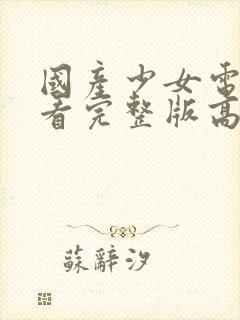 國產少女電
看完整版高
蘇辭汐